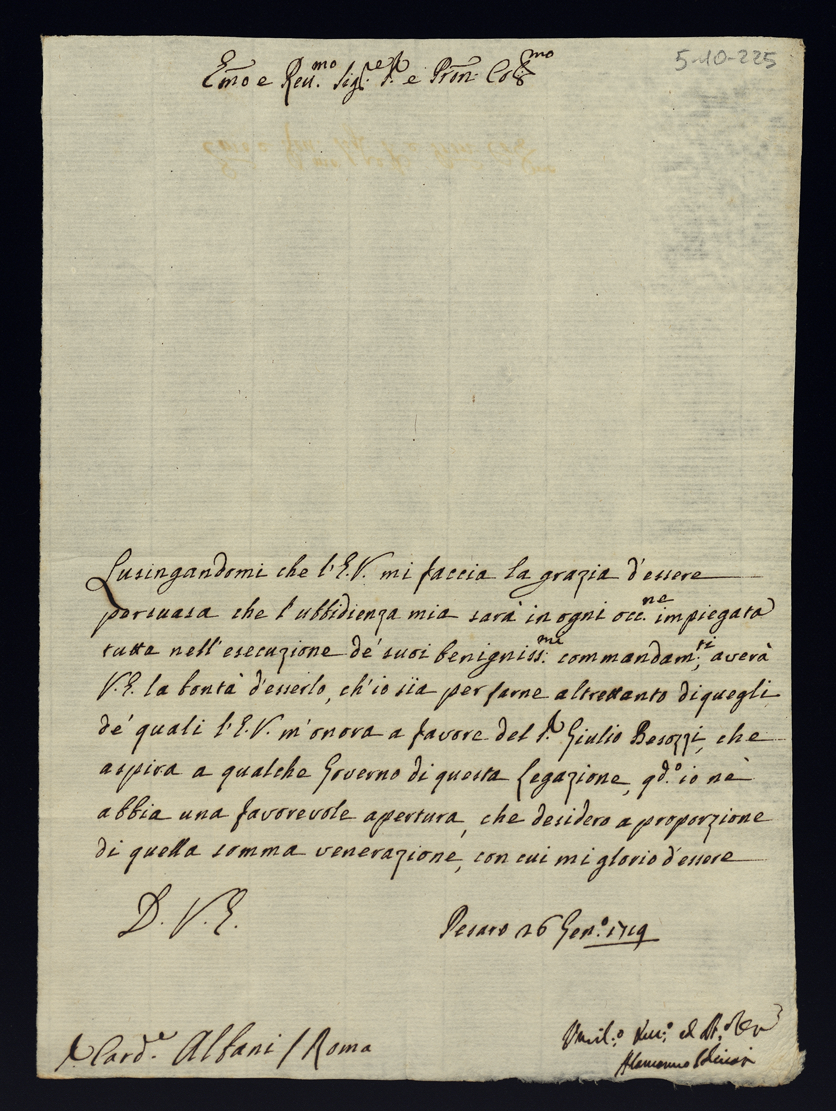 5-10-225
Emo e Reu.mo Sig.e P. e Pron. Col.mo
Lusingandomi che l'E.V. mi faccia la grazia d'essere
persuasa che l'ubbidienza mia sarà in ogni occ.ne impiegata
tutta nell'esecuzione de' suoi benigniss.mi commandam.ti, averà
V.E. la bontà d'esserlo, ch'io sïa per farne altrettanto di quegli,
de' quali l'E.V. m'onora a favore del S. Giulio Besozzi, che
aspira a qualche Governo di questa Legazione, qd.o io nè
abbia una favorevole apertura, che desidero a proporzione
di quella somma venerazione, con cui mi glorio d'essere
D. V. E.
Pesaro 26 Gen.o 1719
S. Card.e Albani / Roma
Vmil.o
Alamanno Salviati